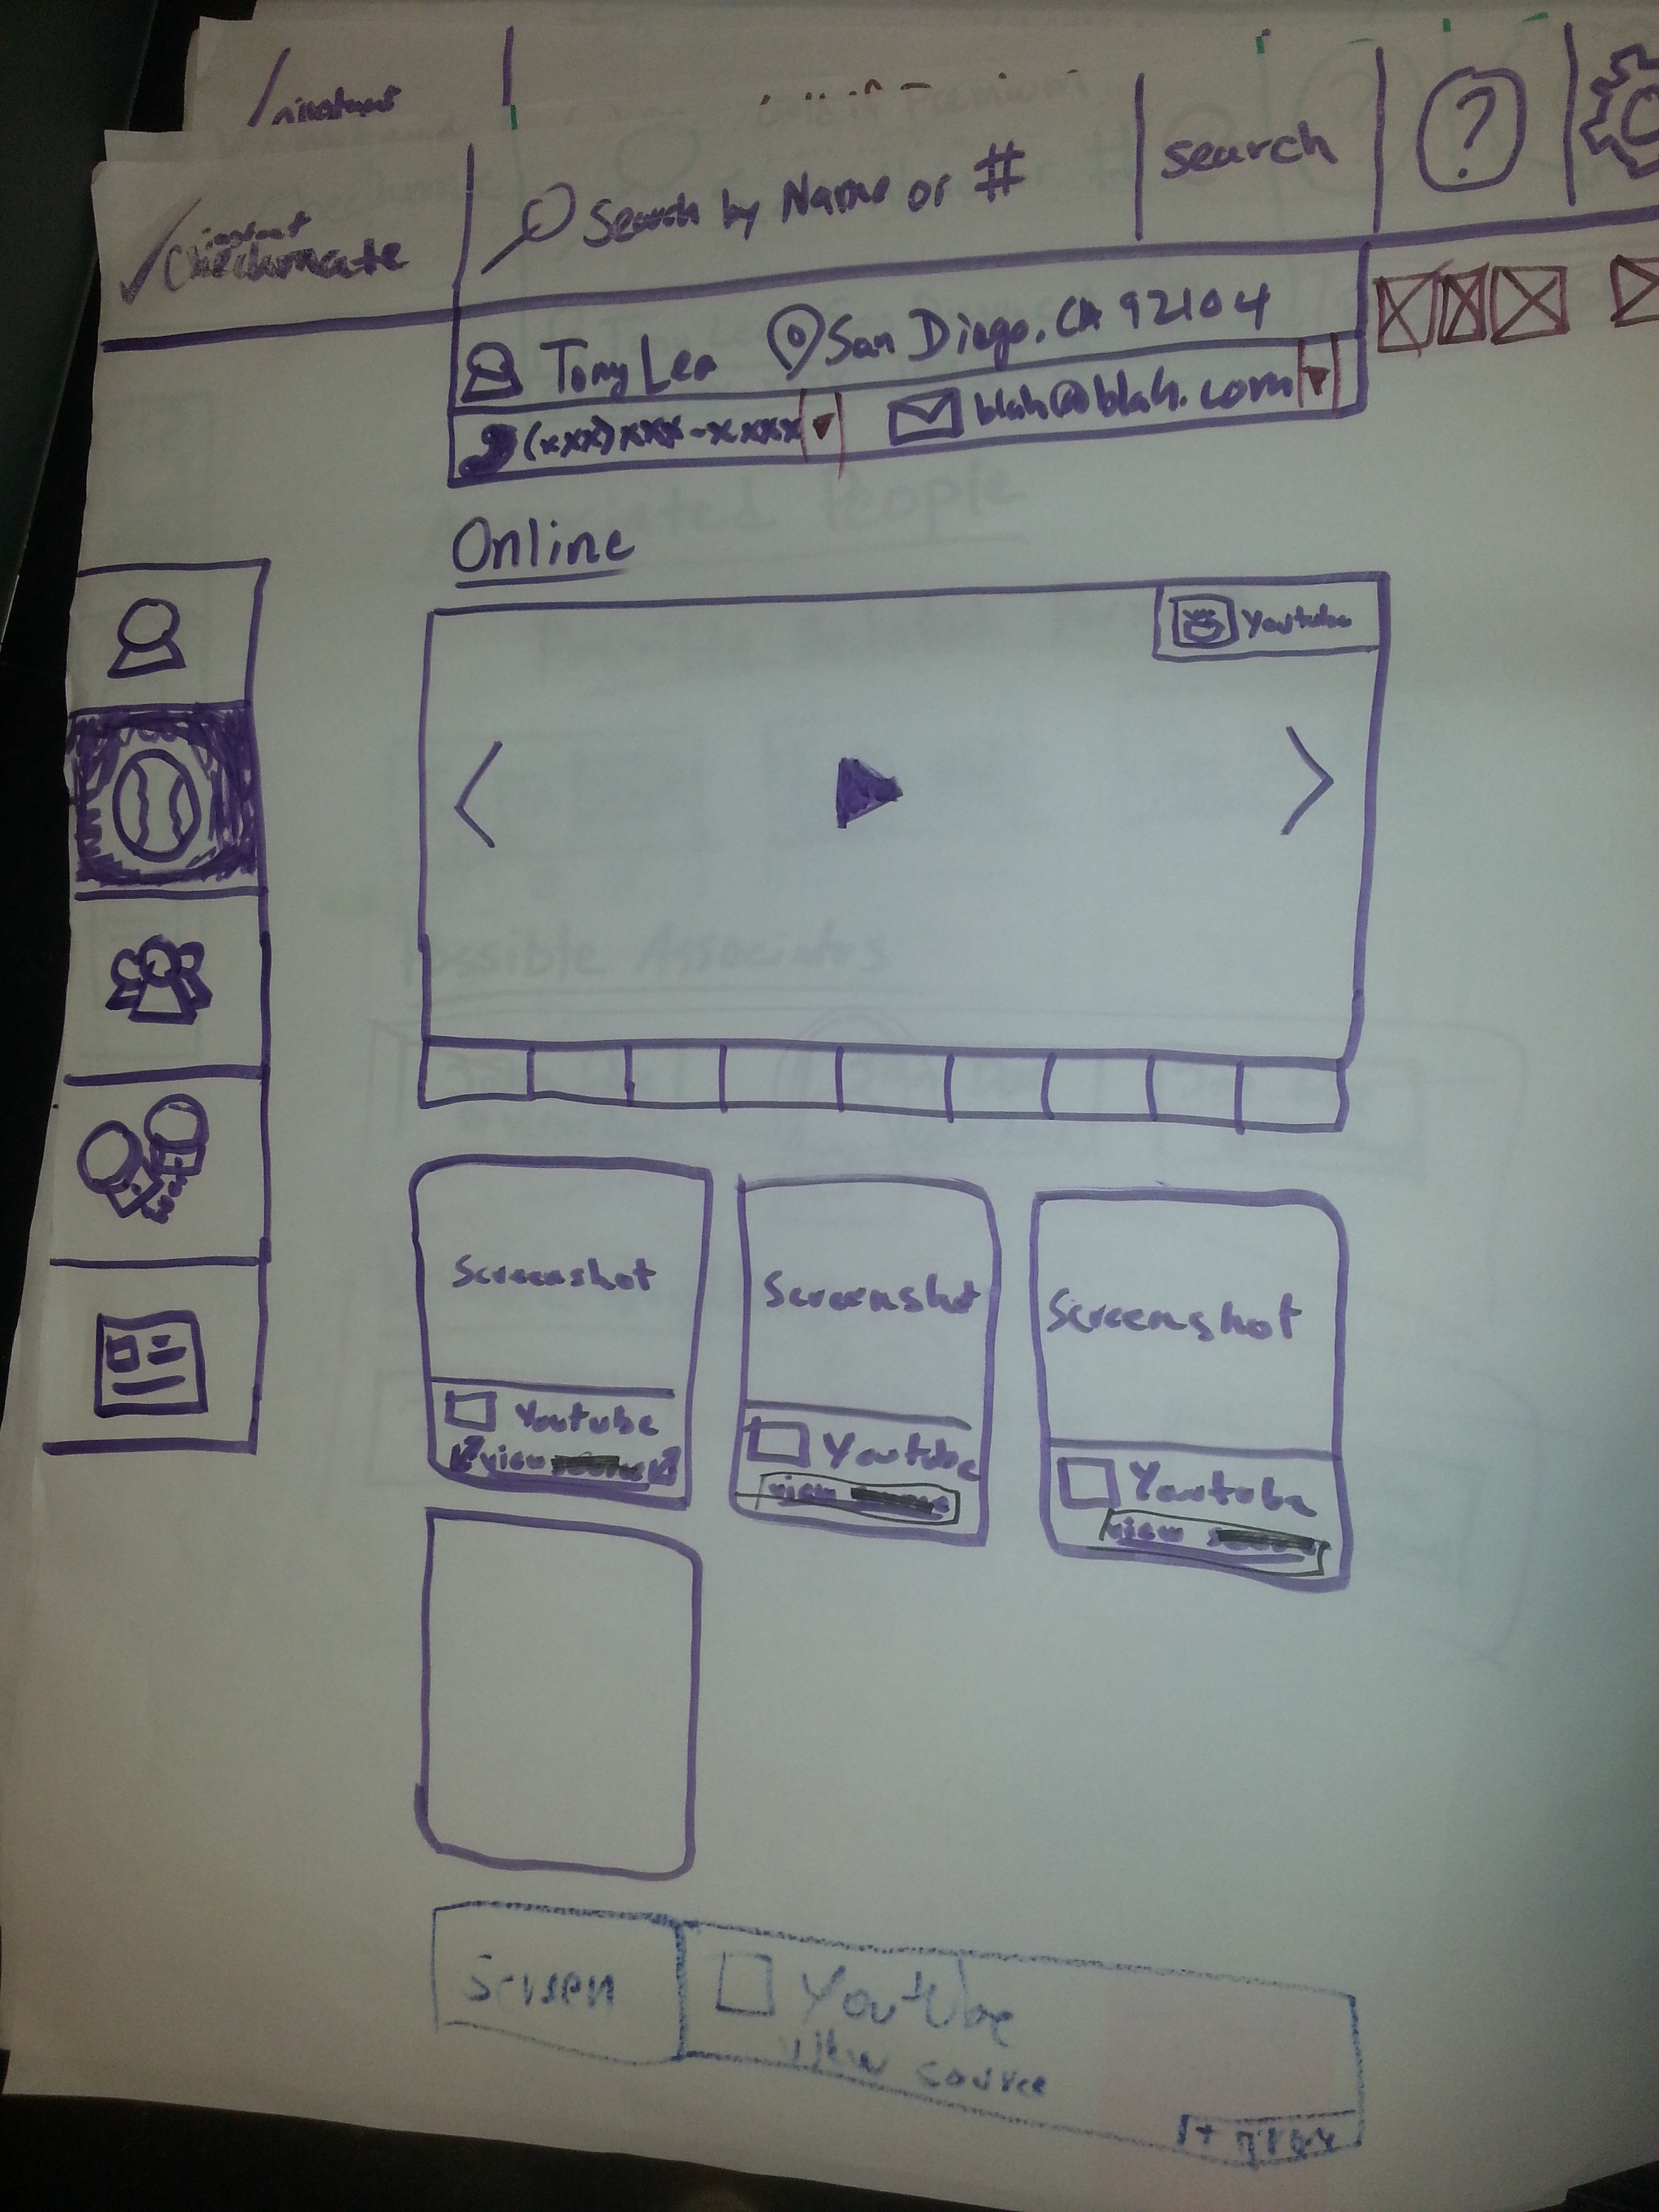 instant
✓ instant Checkmate
Search by Name or #
search
?
Tony Leo San Diego, CA 92104
(xxx) xxx-xxxx blah@blah.com
Online
Youtube
Screenshot
Youtube
view
Screenshot
Youtube
view
Screenshot
Youtube
view
Screen
Youtube
View source